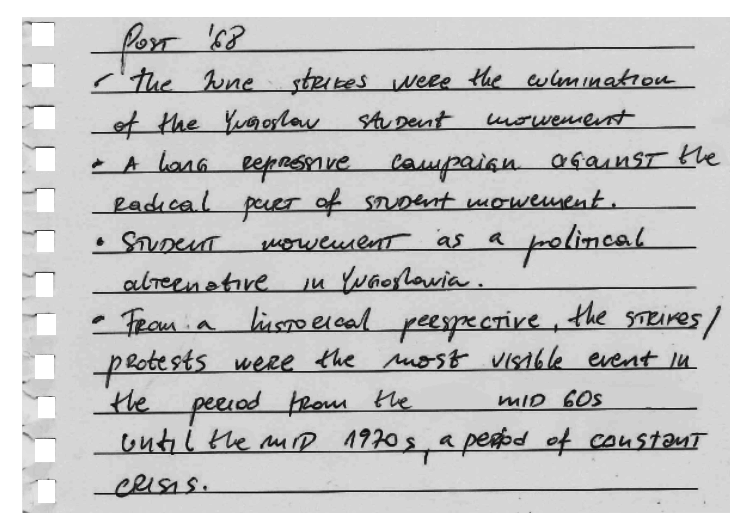 Post '68
- The June strikes were the culmination
of the Yugoslav student movement
- A long repressive campaign against the
radical part of student movement.
• Student movement as a political
alternative in Yugoslavia.
- From a historical perspective, the strikes/
protests were the most visible event in
the period from the mid 60s
until the mid 1970s, a period of constant
crisis.